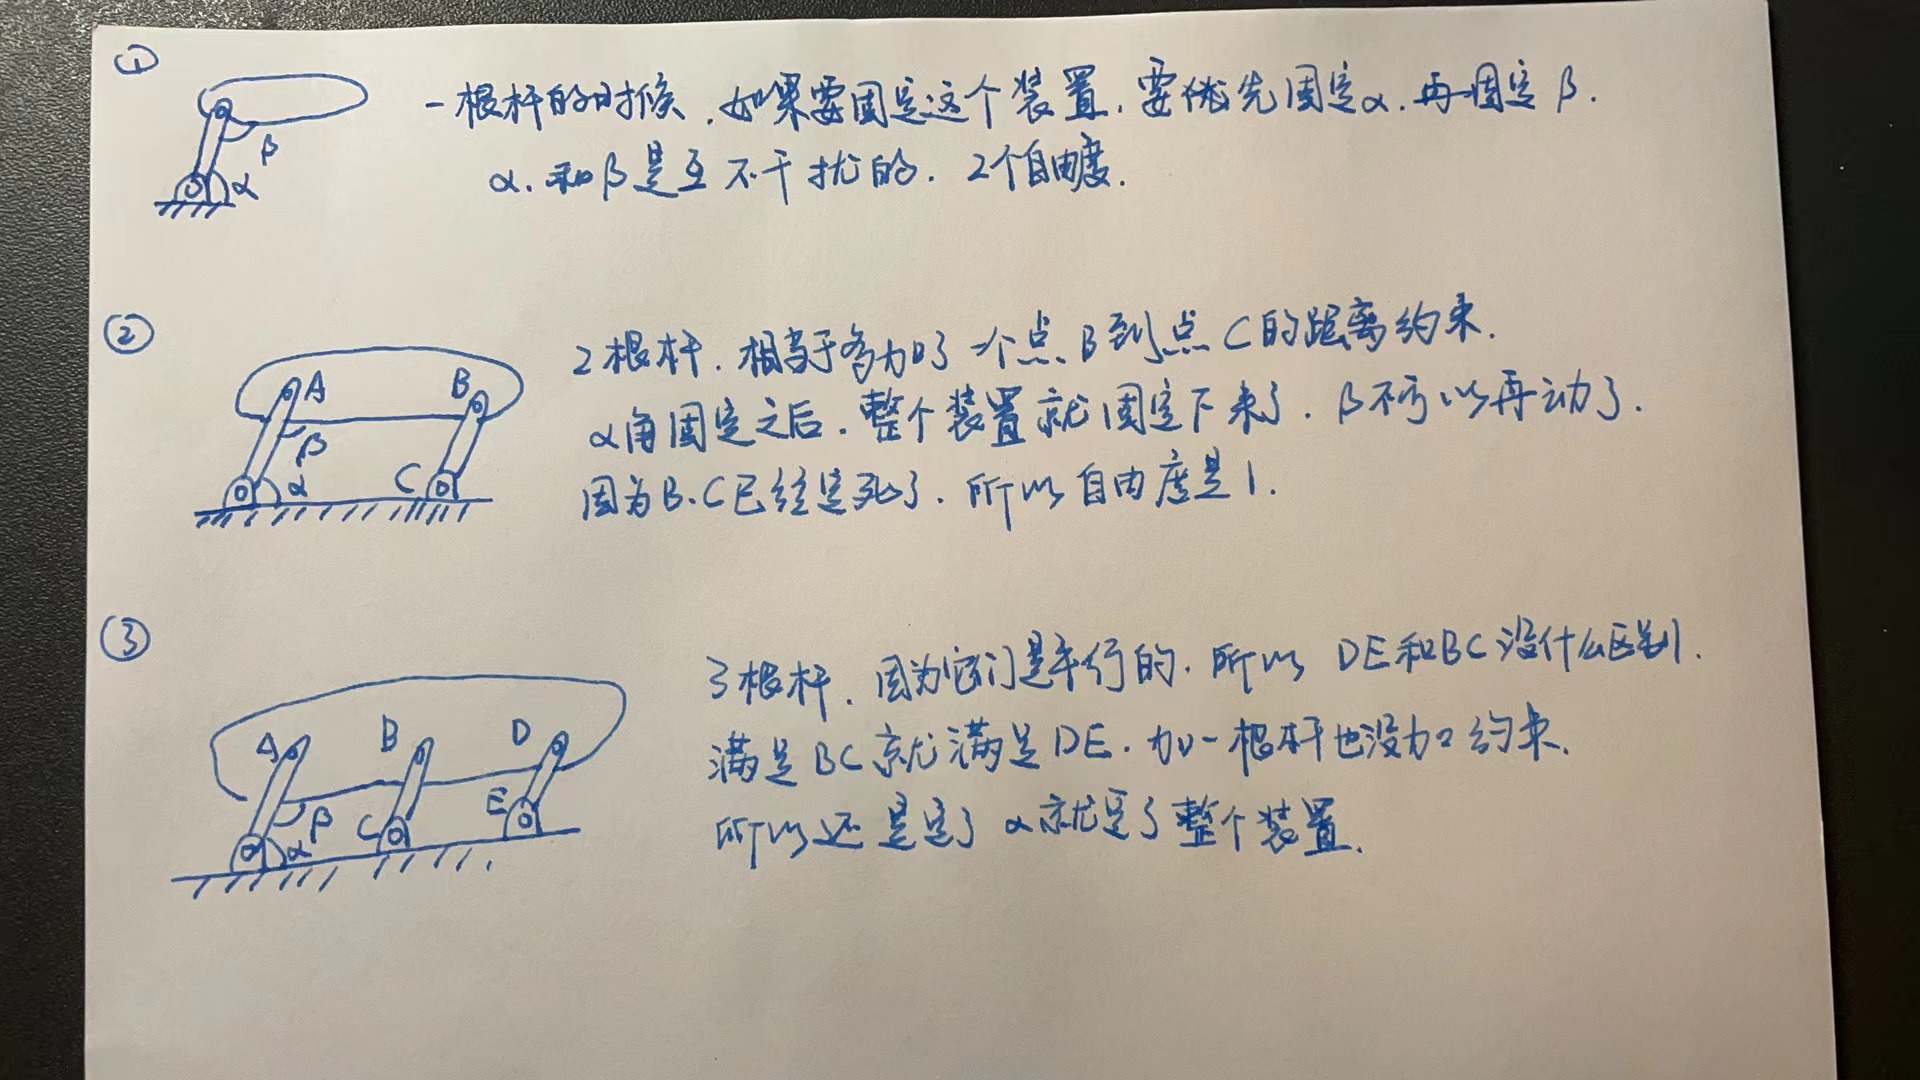 ①
一根杆的时候，如果要固定这个装置，要优先固定α，再固定β．
α、和β是互不干扰的．2个自由度．
β
α
②
2根杆．相当于多加了一个点B到点C的距离约束．
A B
α角固定之后．整个装置就固定下来了．β不可以再动了．
β
α C
因为B、C已经定死了．所以自由度是1．
③
3根杆．因为它们是平行的．所以 DE和BC没什么区别．
A B D
满足BC就满足DE．加一根杆也没加约束．
E
β C
α
所以还是定了α就定了整个装置．